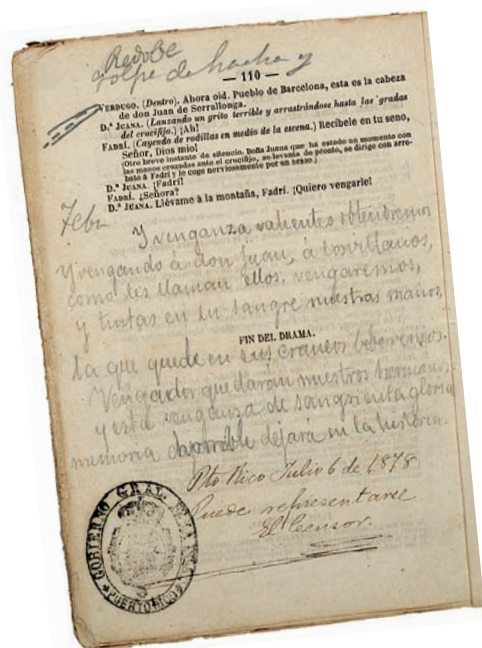 Redoble
golpe de hacha y
— 110 —
VERDUGO. (Dentro). Ahora oid. Pueblo de Barcelona, esta es la cabeza
de don Juan de Serrallonga.
D.ª JUANA. (Lanzando un grito terrible y arrastrándose hasta las gradas
del crucifijo.) ¡Ah!
FADRÍ. (Cayendo de rodillas en medio de la escena.) Recíbele en tu seno,
Señor, Dios mio!
(Otro breve instante de silencio. Doña Juana que ha estado un momento con
las manos cruzadas ante el crucifijo, se levanta de pronto, se dirige con arre-
bato á Fadrí y le coge nerviosamente por un brazo.)
D.ª JUANA. ¡Fadrí!
FADRÍ. ¿Señora?
D.ª JUANA. Llévame á la montaña, Fadrí. ¡Quiero vengarle!
Y venganza valientes obtendremos
Y vengando á don Juan, á
como les llaman ellos, vengaremos,
y tintas en su sangre nuestras manos,
FIN DEL DRAMA.
la que quede en sus craneos beberemos.
Vengados quedarán nuestros hermanos
y esta venganza de sangrienta gloria
memoria dejará en la historia.
Pto Rico Julio 6 de 1878
Puede representarse
El Censor.
GOBIERNO GRAL.
PUERTO RICO